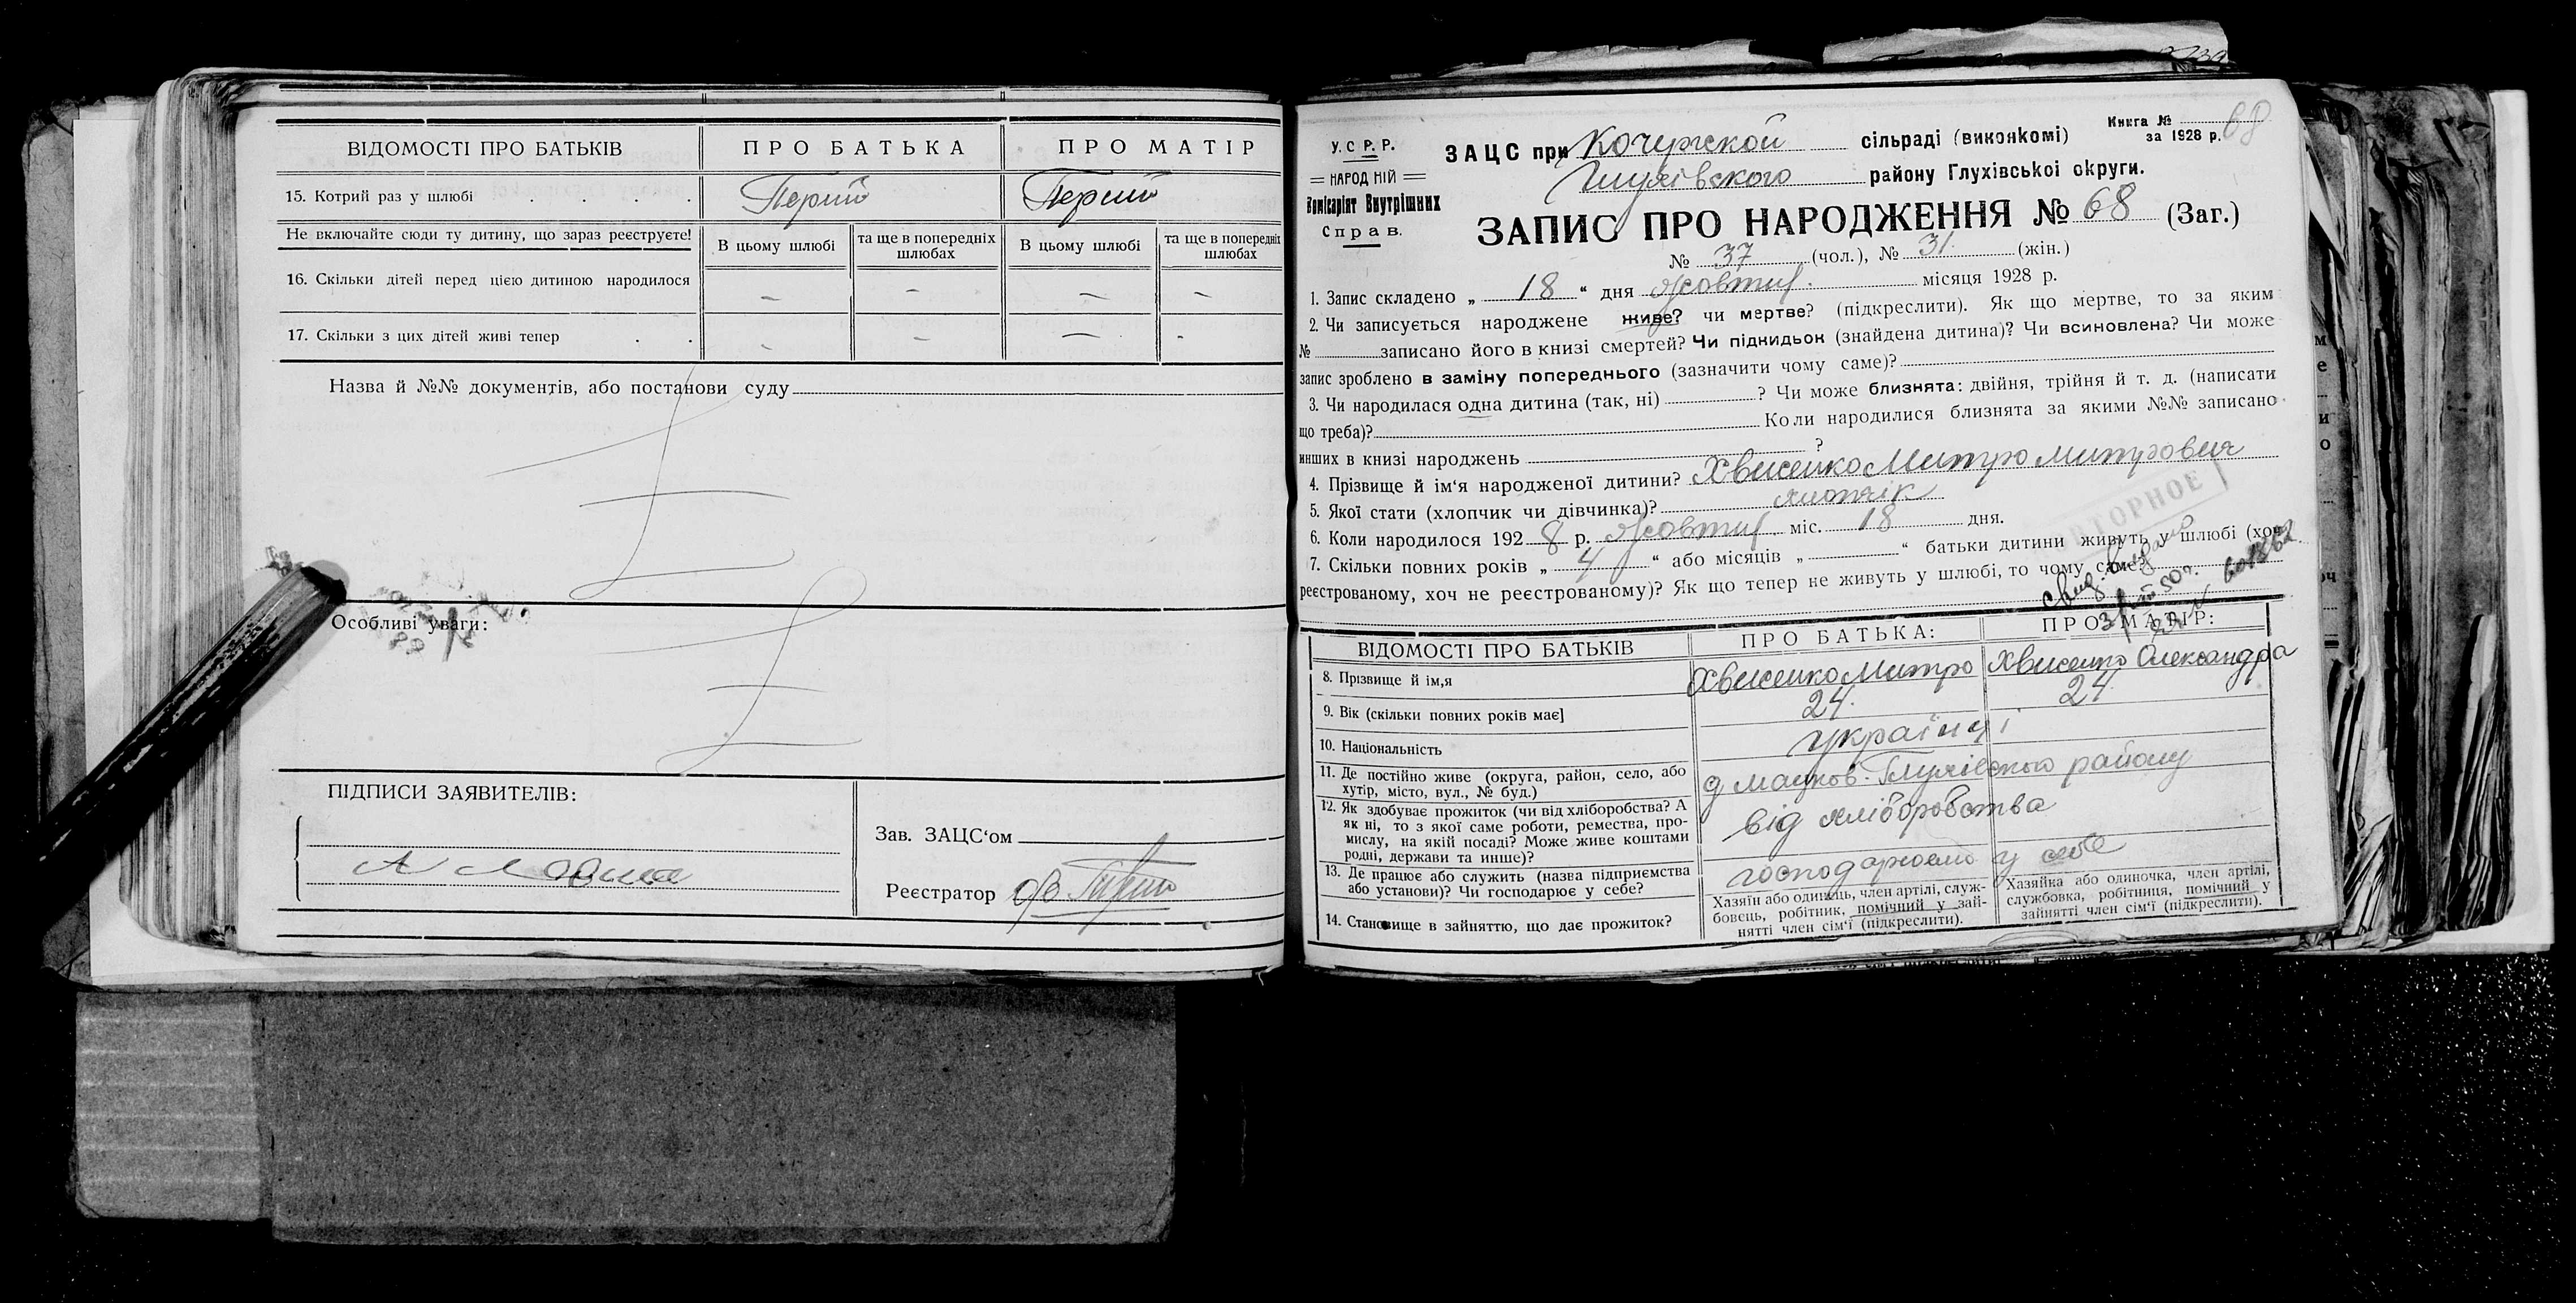 ВІДОМОСТІ ПРО БАТЬКІВ ПРО БАТЬКА ПРО МАТІР
15. Котрий раз у шлюбі . . . . Перший Перший
Не включайте сюди ту дитину, що зараз реєструєте! В цьому шлюбі та ще в попередніх шлюбах В цьому шлюбі та ще в попередніх шлюбах
16. Скільки дітей перед цією дитиною народилося — — — —
17. Скільки з цих дітей живі тепер . . - — — -
Назва й №№ документів, або постанови суду
Особливі уваги:
ПІДПИСИ ЗАЯВИТЕЛІВ:
Зав. ЗАЦС‘ом
Реєстратор
У.С.Р.Р.
НАРОДНІЙ
Комісаріят Внутрішних
Справ.
Книга №
за 1928 р. 68
ЗАЦС при Кочержской сільраді (виконкомі)
Глухівского району Глухівської округи.
ЗАПИС ПРО НАРОДЖЕННЯ № 68 (Заг.)
№ 37 (чол.), № 31. (жін.)
1. Запис складено „ 18 “ дня Жовтня місяця 1928 р.
2. Чи записується народжене живе? чи мертве? (підкреслити). Як що мертве, то за яким
№ записано його в книзі смертей? Чи підкидьок (знайдена дитина)? Чи всиновлена? Чи може
запис зроблено в заміну попереднього (зазначити чому саме)?
3. Чи народилася одна дитина (так, ні) ? Чи може близнята: двійня, трійня й т. д. (написати
що треба)? Коли народилися близнята за якими №№ записано
инших в книзі народжень ?
4. Прізвище й ім‘я народженої дитини? Хвисенко Митро Митрович
5. Якої стати (хлопчик чи дівчинка)? хлопчік
6. Коли народилося 192 8 р. Жовтня міс. 18 дня.
7. Скільки повних років „ 4 “ або місяців „ “ батьки дитини живуть у шлюбі (хоч
реєстрованому, хоч не реєстрованому)? Як що тепер не живуть у шлюбі, то чому саме?
ПОВТОРНОЕ
ВІДОМОСТІ ПРО БАТЬКІВ ПРО БАТЬКА: ПРО МАТІР:
8. Прізвище й ім,я Хвисенко Митро Хвисенко Олександра
9. Вік (скільки повних років має] 24. 24.
10. Національність українці
11. Де постійно живе (округа, район, село, або
хутір, місто, вул., № буд.) Глухівского району
12. Як здобуває прожиток (чи від хліборобства? А
як ні, то з якої саме роботи, ремества, про-
мислу, на якій посаді? Може живе коштами
родні, держави та инше)? від хліборобства
13. Де працює або служить (назва підприємства
або установи)? Чи господарює у себе? господарюємо у себе
14. Становище в зайняттю, що дає прожиток?
Хазяїн або одинець, член артілі, служ-
бовець, робітник, помічний у зай-
нятті член сім‘ї (підкреслити).
Хазяйка або одиночка, член артілі,
службовка, робітниця, помічний у
зайнятті член сім‘ї (підкреслити).